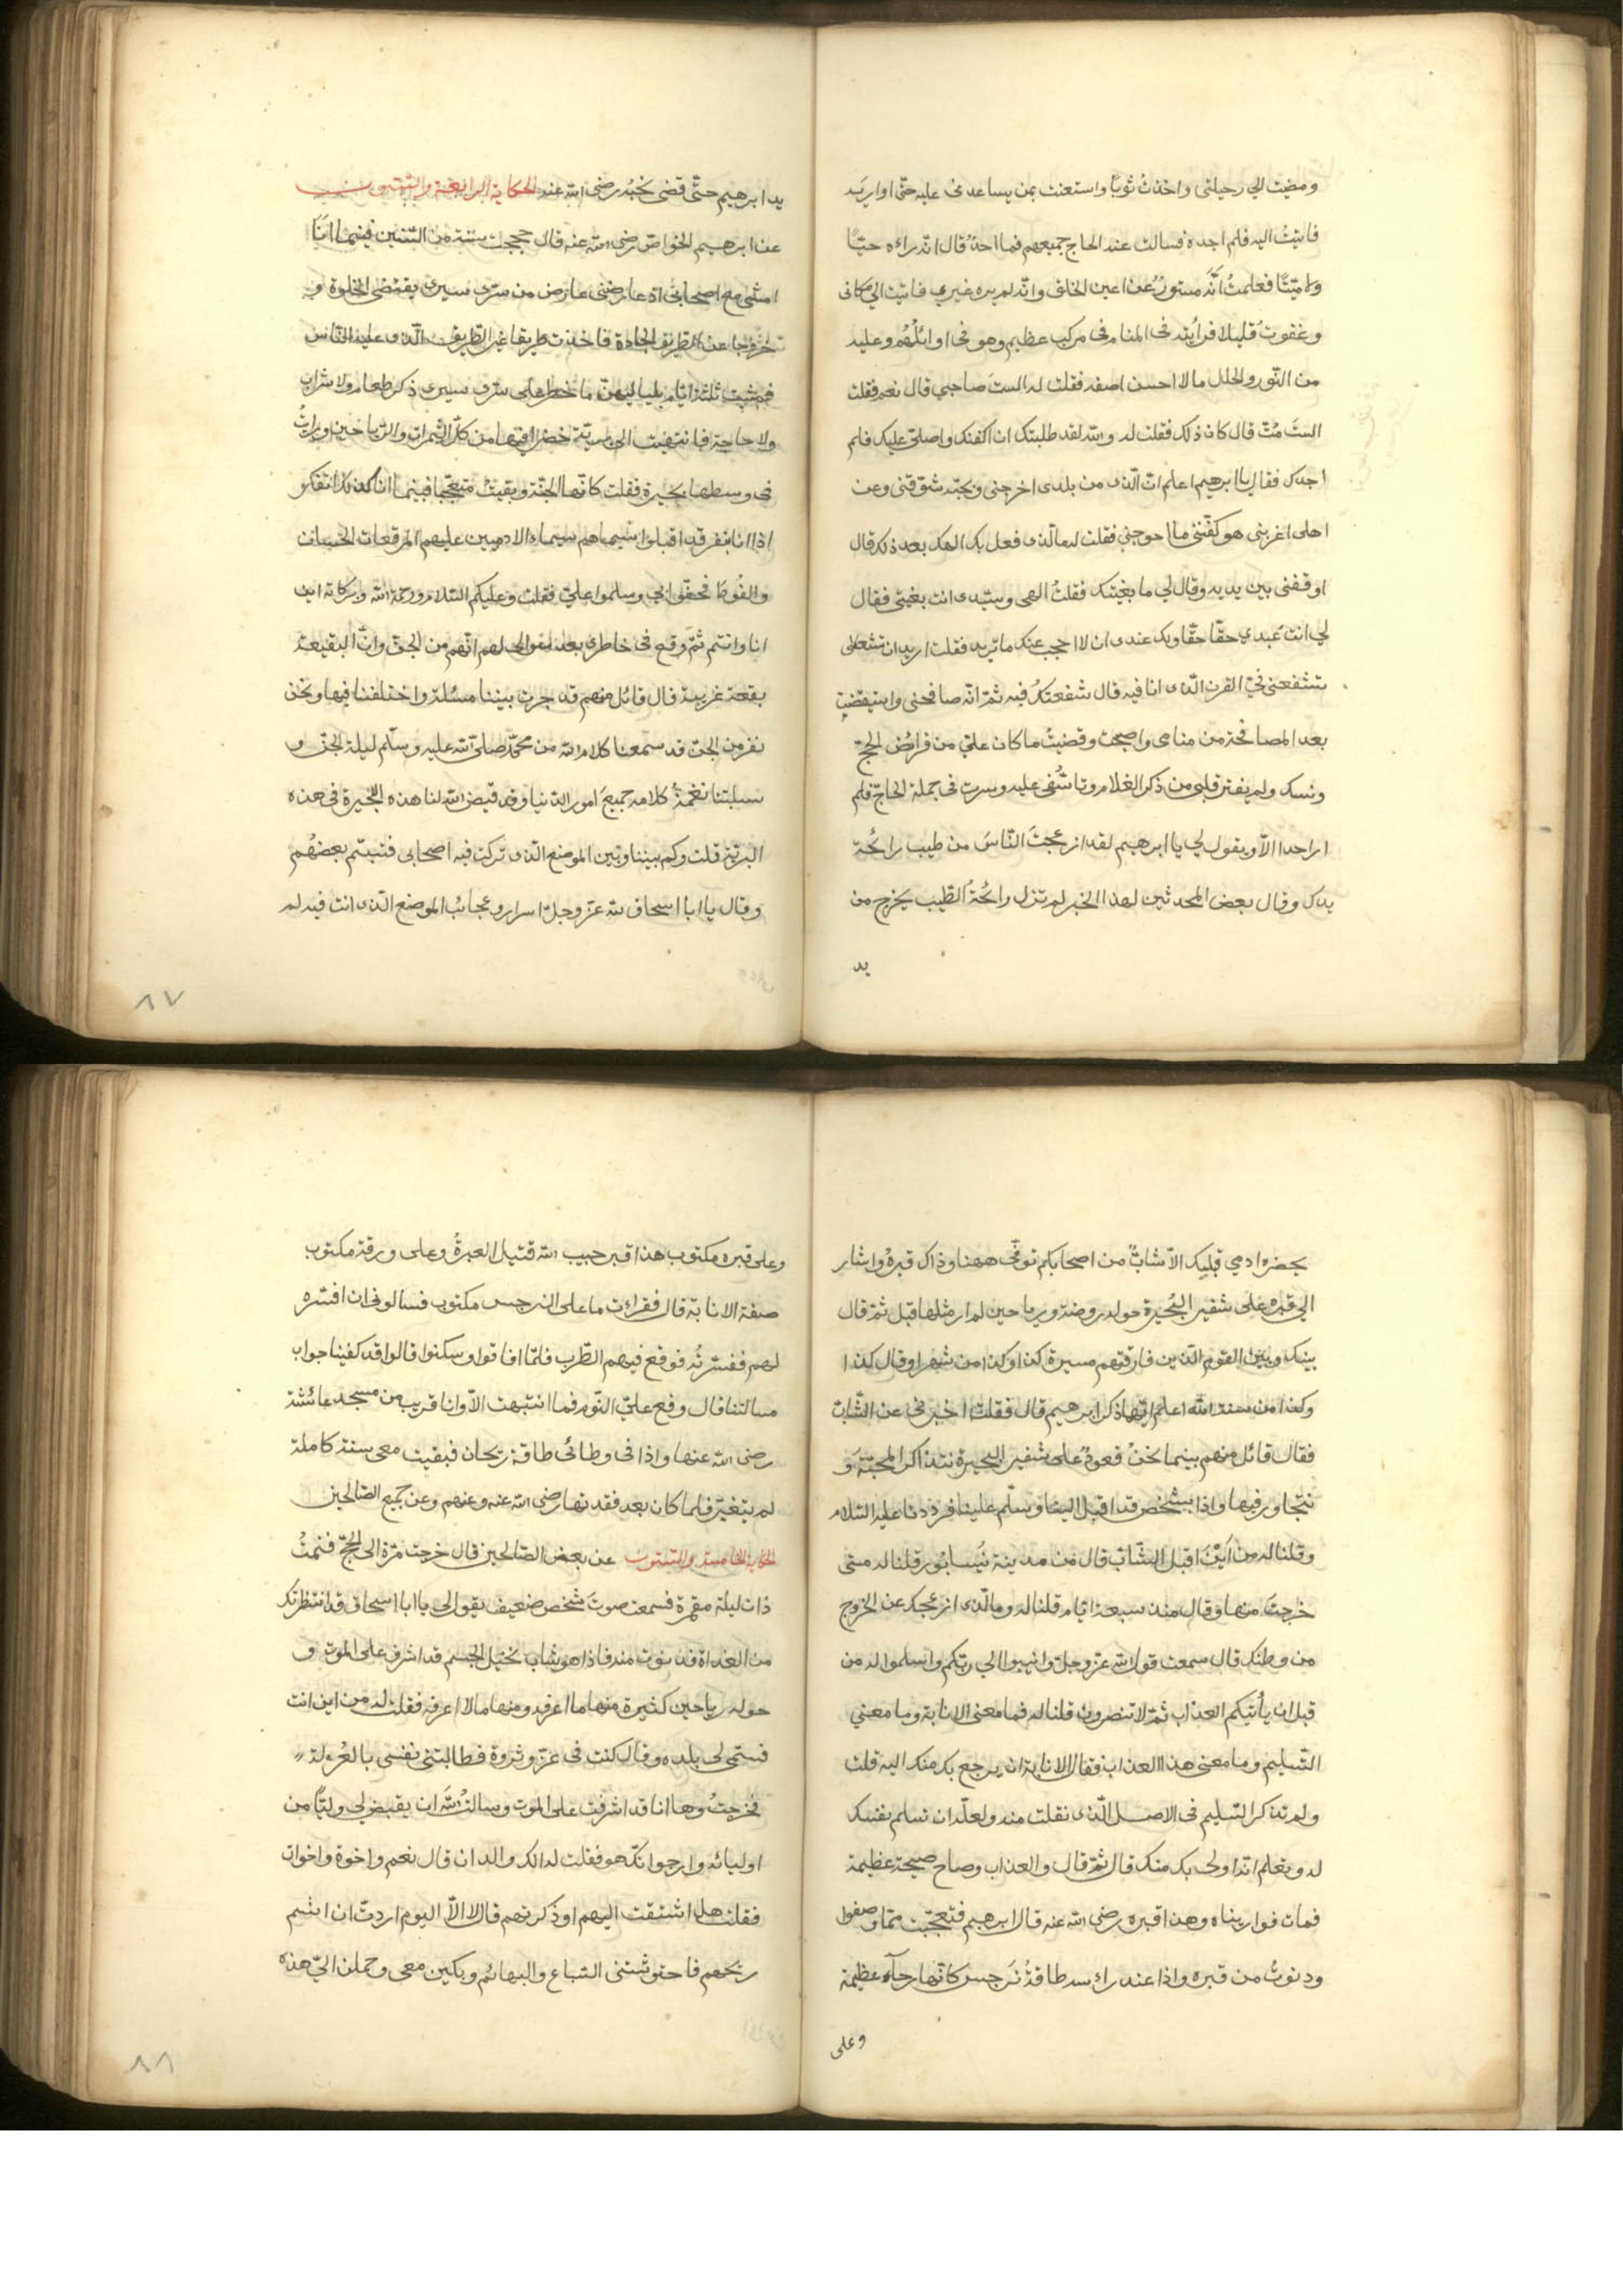 ومضيت الي رحيلتي واخذتُ ثوبًا واستعنت بمن يساعدنى عليه حتّى اواريَه
فاتيتُ اليه فلم اجده فسالت عند الحاج جميعهم فما احدٌ قال انّه راءه حيًّا
ولا ميّتًا فعلمتُ انَّه مستورٌ عن اعين الخلق وانّه لم يره غيري فاتيت الي مكانى
وغفوتُ قليلا فرأيته فى المنام فى مركب عظيم وهو فى اوائلهُم وعليه
من النّور والحلل مالا احسن اصفه فقلت له الستَ صاحبي قال نعم فقلت
الستَ مُتّ قال كان ذلك فقلت له والله لقد طلبتك ان اكفنك واصلّى عليك فلم
اجدك فقال يا ابرهيم اعلم انّ الّذى من بلدى اخرجنى وبحبّه شوّقنى وعن
اهلى اغربنى هو كفّننى ما احوجني فقلت له ما الّذى فعل بك الهك بعد ذلك قال
اوقفنى بين يديه وقال لي ما بغيتك فقلتُ الهى وسيّدى انت بغيتى فقال
لي انت عَبدي حقّا حقّا ولك عندى ان لا احجب عنك ما تريد فقلت اريد ان
تشفعنى في القرن الّذى انا فيه قال شفعتك فيه ثمّ انّه صافحنى واستيقضت
بعد المصافحة من منامى واصبحت وقضيتُ ما كان عليّ من فرائض الحجّ
ونسكه ولم يفتر قلبي من ذكر الغلام وتاسّفى عليه وسرت فى جملة الحاجّ فلم
ار احدا الّا ويقول لي يا ابرهيم لقد ازعجتَ النّاسَ من طيب رائحة
يدك وقال بعض المحدثين لهذا الخبر لم تزل رائحةُ الطّيب يخرج من
يد
يد ابرهيم حتّى قضى نحبُه رضى الله عنه الحكاية الرابعة والستون
عن ابرهيم الخواصّ رضى الله عنه قال حججت سنة من السّنين فبينما انا
امشى مع اصحابى اذ عارضنى عارض من سرّى سيرى يقتضى الخلوة و
خروجا عن الطّريق الجادة فاخذت طريقا غير الطّريق الّذى عليه النّاس
فمشيت ثلثة ايّام بلياليهنّ ما خطر على سرّى سيرى ذكر طعام ولا شراب
ولا حاجة فانتهيت الى بريّة خضرا فيها من كلّ الثّمرات والرّياحين ورايتُ
فى وسطها بحيرة فقلت كانّها الجنّة وبقيتُ متعجّبا فبينما انا كذلك اتفكر
اذا انا بنفر قد اقبلوا سيماهم سيماء الادميين عليهم المرقعات الحسان
والفُوطَ فحفّوا بي وسلموا عليّ فقلت وعليكم السّلام ورحمة الله وبركاته اين
انا وانتم ثمّ وقع فى خاطرى بعد انّهم من الجنّ وانّ البقيعة
بقعة غريبة قال قائل منهم قد جرت بيننا مسئلة واختلفنا فيها ونحن
نفر من الجنّ قد سمعنا كلام الله من محمّد صلى الله عليه وسلّم ليلة الجنّ و
سلبتنا نغمةُ كلامه جميعَ امور الدّنيا وقد قيض الله لنا هذه البحيرة فى هذه
البريّة قلت وكم بيننا وبين الموضع الّذى تركت فيه اصحابى فتبسّم بعضهُم
وقال يا ابا اسحاق لله عزّ وجلّ اسرار وعجائب الموضع الّذى انت فيه لم
٨٧
يحضره ادمي قبلك الّا شابٌّ من اصحابكم توفّى ههنا وذاك قبرهُ واشار
الي قبره على شفير البُحيرة حوله روضة ورياحين لم ار مثلها قبل ثمّ قال
بينك وبين القوم الّذين فارقتهم مسيرة كذا وكذا من شهر او قال كذا
وكذا من سنة الله اعلم ايّها ذكر ابرهيم قال فقلت اخبرنى عن الشّابّ
فقال قائل منهم بينما نحنُ قعودٌ على شفير البحيرة نتذاكر المحبّة و
نتحاور فيها واذا بشخص قد اقبل الينا وسلّم علينا فرددنا عليه السّلام
وقلنا له من اَينَ اقبل الشّابّ قال من مدينة نَيسابُور قلنا له متى
خرجتَ منها وقال منذ سبعة ايّام قلنا له وما الّذى ازعجك عن الخروج
من وطنك قال سمعت قول الله عزّ وجلّ وانيبوا الي ربّكم واسلموا له من
قبل ان يأتيكم العذاب ثمّ لا تنصرون قلنا له فما معنى الانابة وما معنى
التّسليم وما معنى هذا العذاب فقال الانابة ان يرجع بك منك اليه قلت
ولم تذكر التّسليم فى الاصل الّذى نقلت منه ولعلّه ان تسلم نفسك
له وتعلم انّه اولى بك منك قال ثمّ قال والعذاب وصاح صيحة عظيمة
فمات فواريناه وهذا قبره رضى الله عنه قال ابرهيم فتعجّبت ممّا وصفوا
ودنوتُ من قبره واذا عند راءسه طاقةُ نَرجس كانّها رحآء عظيمة
وعلى
وعلى قبره مكتوب هذا قبر حبيب الله قتيل الغيرةُ وعلى ورقة مكتوب
صفة الانابة قال فقراءت ما على النرجس مكتوب فسالونى ان افسّره
لهم ففسّرتُه فوقع فيهم الطّرب فلمّا افاقوا وسكنوا قالوا قد كفينا جواب
مسالتنا قال وقع عليّ النّوم فما انتبهت الّا وانا قريب من مسجد عائشة
رضى الله عنها واذا فى وطائى طاقة ريحان فبقيت معى سنة كاملة
لم يتغيّر فلما كان بعد فقدتها رضى الله عنه وعنهم وعن جميع الصّالحين
الحكاية الخامسة والستون عن بعض الصّالحين قال خرجت مرّة الى الحجّ فنمتُ
ذات ليلة مقمرة فسمعت صوتَ شخص ضعيف يقول لي يا ابا اسحاق قد انتظرتك
من الغداة فدنوت منه فاذا هو شاب نحيل الجسم قد اشرف على الموت و
حوله رياحين كثيرة منها ما اعرفه ومنها مالا اعرفه فقلت له من اين انت
فسمّى لي بلده وقال كنت فى عزّ وثروة فطالبتنى نفسى بالعُزلة
فخرجتُ وها انا قد اشرفت على الموت وسالتُ الله ان يقيض لي وليًّا من
اوليائه وارجو انّك هو فقلت له الك والدان قال نعم واخوة واخوات
فقلت هل اشتقت اليهم او ذكرتهم قال لا الّا اليوم اردتّ ان اشم
ريحهم فاحتوشتنى السّباع والبهائم وبكين معى وحملن اليّ هذه
٨٨